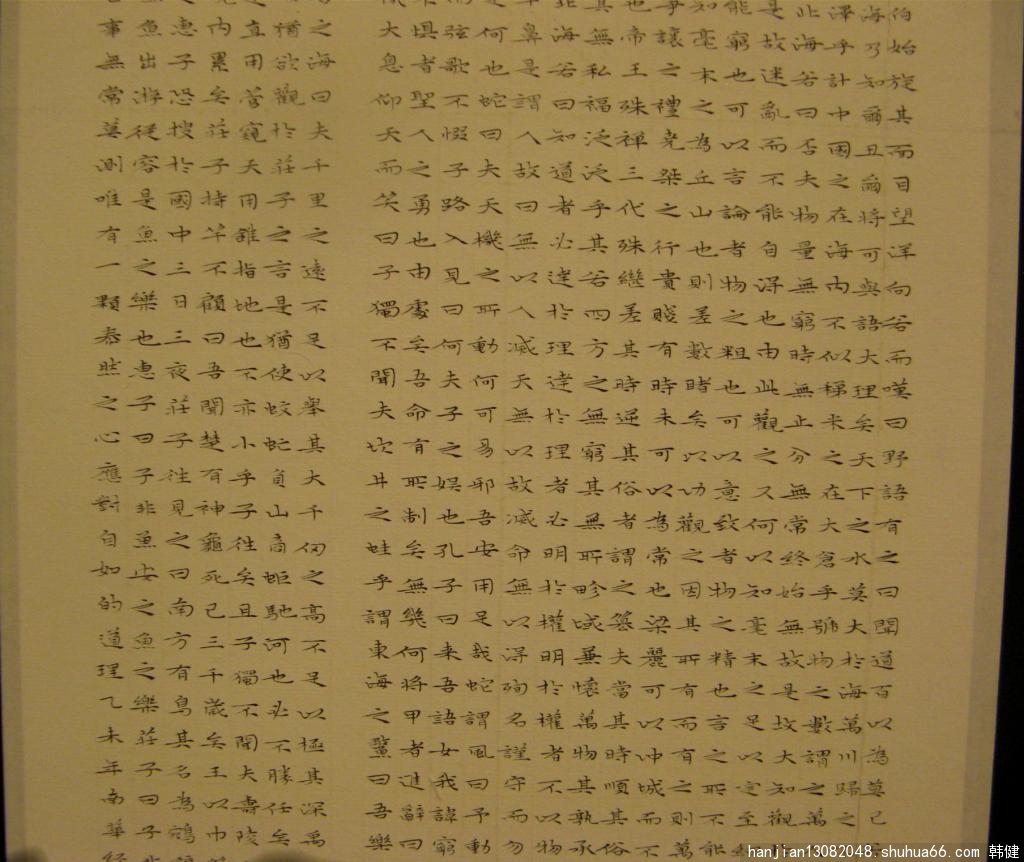 伯始旋其面目望洋向若而嘆曰野語有之曰聞道百以為莫己
海乃知爾丑爾將可與語大理矣天下之水莫大於海萬川歸之
澤乎計中國之在海內不似稊米之在大倉乎號物之數謂之萬
北海若曰否夫物量無窮時無止分無常終始無故是故大知觀
是故迷亂而不能自得也由此觀之又何以知毫末之足以定至
能窮也可以言論者物之粗也可以意致者物之精也言之所不能
知毫末之為丘山也則差數睹矣以功觀之因其所有而有之則萬
爭讓之禮堯桀之行貴賤有時未可以為常也梁麗可以沖城而不
也帝王殊禪三代殊繼差其時逆其俗者謂之篡夫當其時順其俗
其無私福泛泛乎其若四方之無窮其無所畛域兼懷萬物其孰承
北海若曰知道者必達於理達於理者必明於權明於權者不以物
鼻是謂人故曰無以人滅天無以故滅命無以得殉名謹守而勿
何也蛇曰夫天機之所動何可易邪吾安用足哉蛇謂風曰予動
而弦歌不惙子路入見曰何夫子之娛也孔子曰來吾語女我諱窮
惧者聖人之勇也由處矣吾命有所制矣無幾何將甲者進辭曰
大息仰天而笑曰子獨不聞夫坎井之蛙乎謂東海之鱉曰吾樂
之海曰夫千里之遠不足以舉其大千仞之高不足以極其深禹
猶欲觀於莊子之言是猶使蚊虻負山商蚷馳河也必不勝任矣
直用管窺天用錐指地也不亦小乎子往矣且子獨不聞夫壽陵
內累矣莊子持竿不顧曰吾聞楚有神龜死已三千歲矣王以巾
惠子恐搜於國中三日三夜莊子往見之曰南方有鳥其名為鵷
魚出游從容是魚之樂也惠子曰子非魚安之魚之樂莊子曰子非
事無常莫測唯有一顆泰然之心應對自如的道理乙未年南華經
hanjian13082048.shuhua66.com 韩健